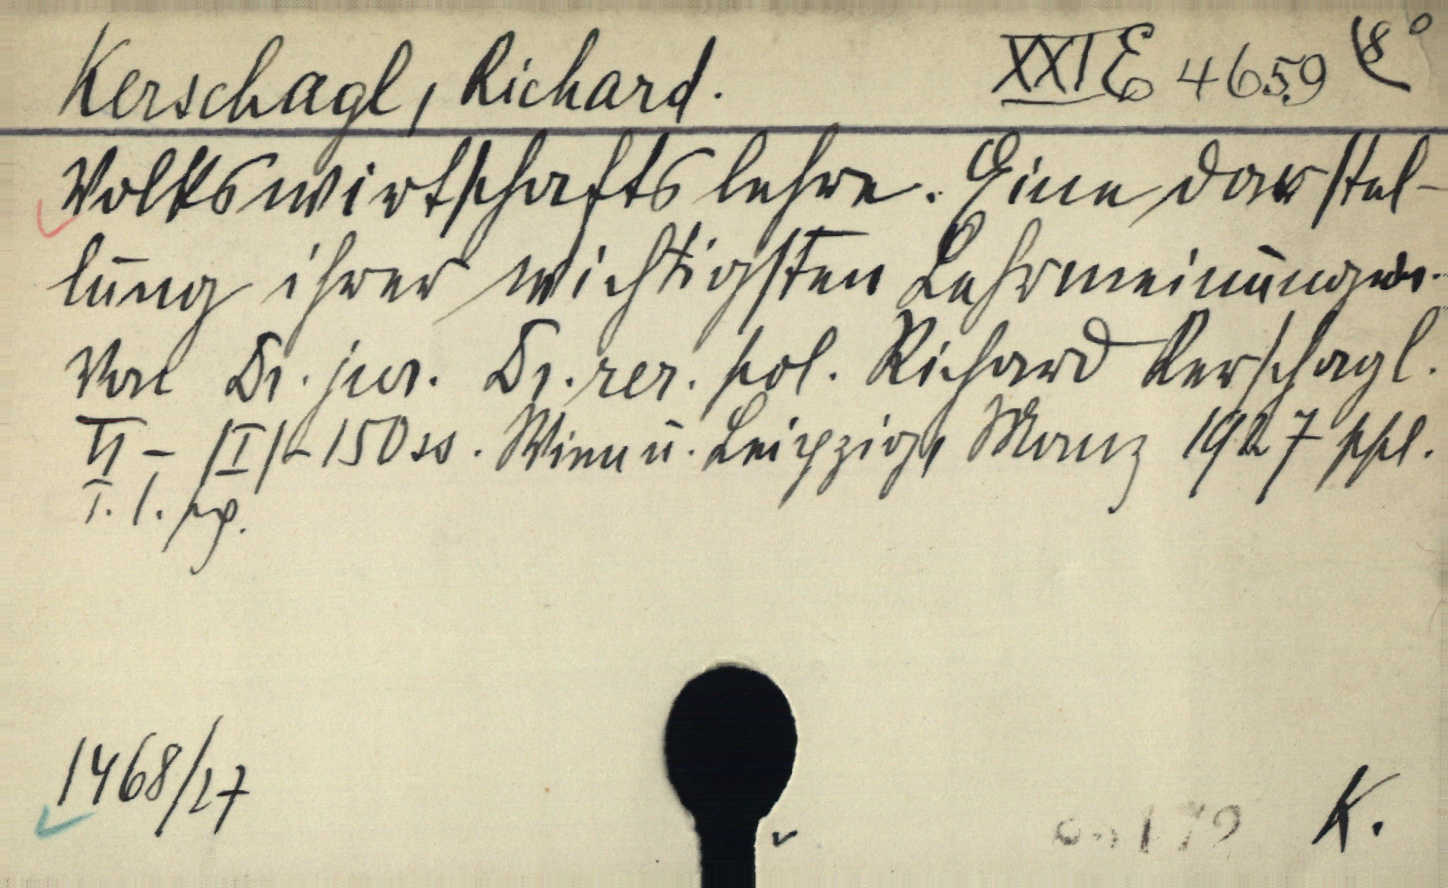 Kerschagl, Richard. XXI E 4659 8°
Volkswirtschaftslehre. Eine Darstel-
lung ihrer wichtigsten Lehrmeinungen.
Von Dr. jur. Dr. rer. pol. Richard Kerschagl.
VI - /I/ - 150 ss. Wien u. Leipzig, Manz 1927
1468/27
K.